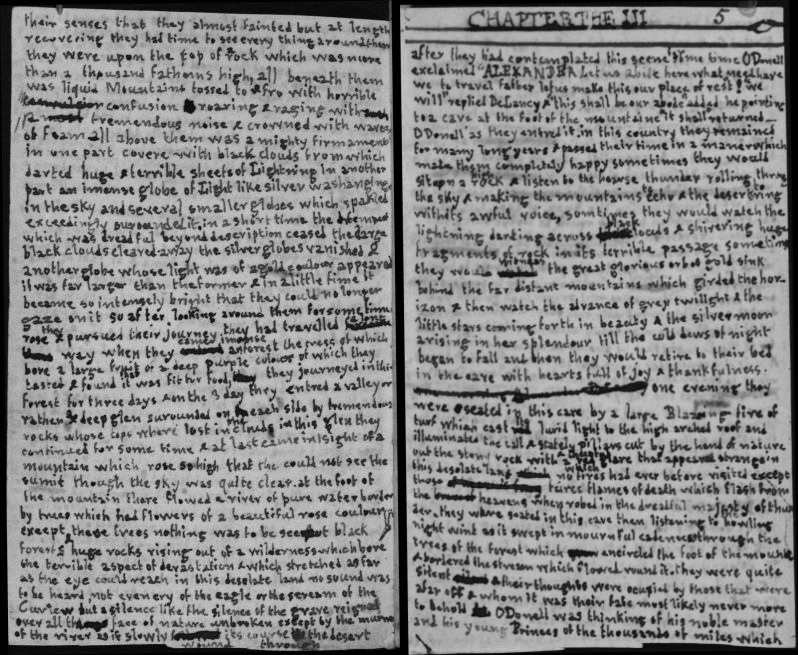 their senses that they almost fainted but at length
recovering they had time to see every thing around them
they were upon the top of rock which was more
than a thousand fathoms high, all beneath them
was liquid Mountains tossed to & fro with horrible
confusion roaring & raging with
a tremendous noise & crowned with waves
of foam all above them was a mighty firmament
in one part covere with black clouds from which
darted huge & terrible sheets of Lightning in another
part an imense globe of Light like silver was hanging
in the sky and several smaller globes which spakled
exceedingly surounded it, in a short time the tempest
which was dreadful beyond description ceased the large
black clouds cleared away the silver globes vanished &
another globe whose light was of a gold coulour appeared
it was far larger than the former & in a little time it
became so intensely bright that they could no longer
gaze on it so after looking around them for some time
they rose & pursued their journey they had travelled a long
way when they came imense forest the trees of which
bore a large fruit of a deep purple colour of which they
tasted & found that it was fit for food, they journeyed in this
forest for three days & on the 3 day they entred a valley or
rather a deep glen surounded on each side by tremendous
rocks whose tops where lost in the clouds in this glen they
continued for some time & at last came in sight of a
mountain which rose so high that the could not see the
sumit though the sky was quite clear. at the foot of
the mountain there flowed a river of pure water border
by trees which had flowers of a beautiful rose coulour
except these trees nothing was to be seen but black
forests & huge rocks rising out of a wilderness which bore
the terrible aspect of devastation & which stretched as far
as the eye could reach in this desolate land no sound was
to be heard not even ery of the eagle or the scream of the
Curlew but a silence like the silence of the grave reigned
over all the face of nature unbroken except by the murm
of the river as it slowly wound its course through the desert
CHAPTER THE III 5
after they had contemplated this scene some time O Donell
exclaimed "ALEXANDER Let us abide here what need have
we to travel father let us make this our place of rest! we
will" replied DeLancy & "this shall be our abode added he pointing
to a cave at the foot of the mountaine it shall returned
O Donell as they entred it. in this country they remained
for many long years & passed their time in a manner which
made them completely happy sometimes they would
sit upon a high rock & listen to the hoarse thunder rolling through
the sky & making the mountains to echo & the desert ring
with its awful voice, somtimes they would watch the
lightning darting across black clouds & shivering huge
fragments of rock in its terrible passage sometim
they would witness the great glorious orb of gold sink
behind the far distant mountains which girded the hor
izon & then watch the advance of grey twilight & the
little stars coming forth in beauty & the silver moon
arising in her splendour till the cold dews of night
began to fall and then they would retire to their bed
in the cave with hearts full of joy & thankfulness.
one evening they
were seated in this cave by a large Blazing fire of
turf which cast its lurid light to the high arched roof and
illuminated the tall & stately pillars cut by the hand of nature
out the stony rock with a red glare that appeared strange in
this desolate land which no fires had ever before visited except
those fierce flames of death which flash from
the heavens when robed in the dreadful majesty of thun
der they were seated in this cave then listening to howling
night wind as it swept in mournful cadence through the
trees of the forest which encircled the foot of the mounta
& bordered the stream which flowed round it. they were quite
silent & their thoughts were ocupied by those that were
afar off & whom it was their fate most likely never more
to behold O Donell was thinking of his noble master
and his young Princes of the thousands of miles which